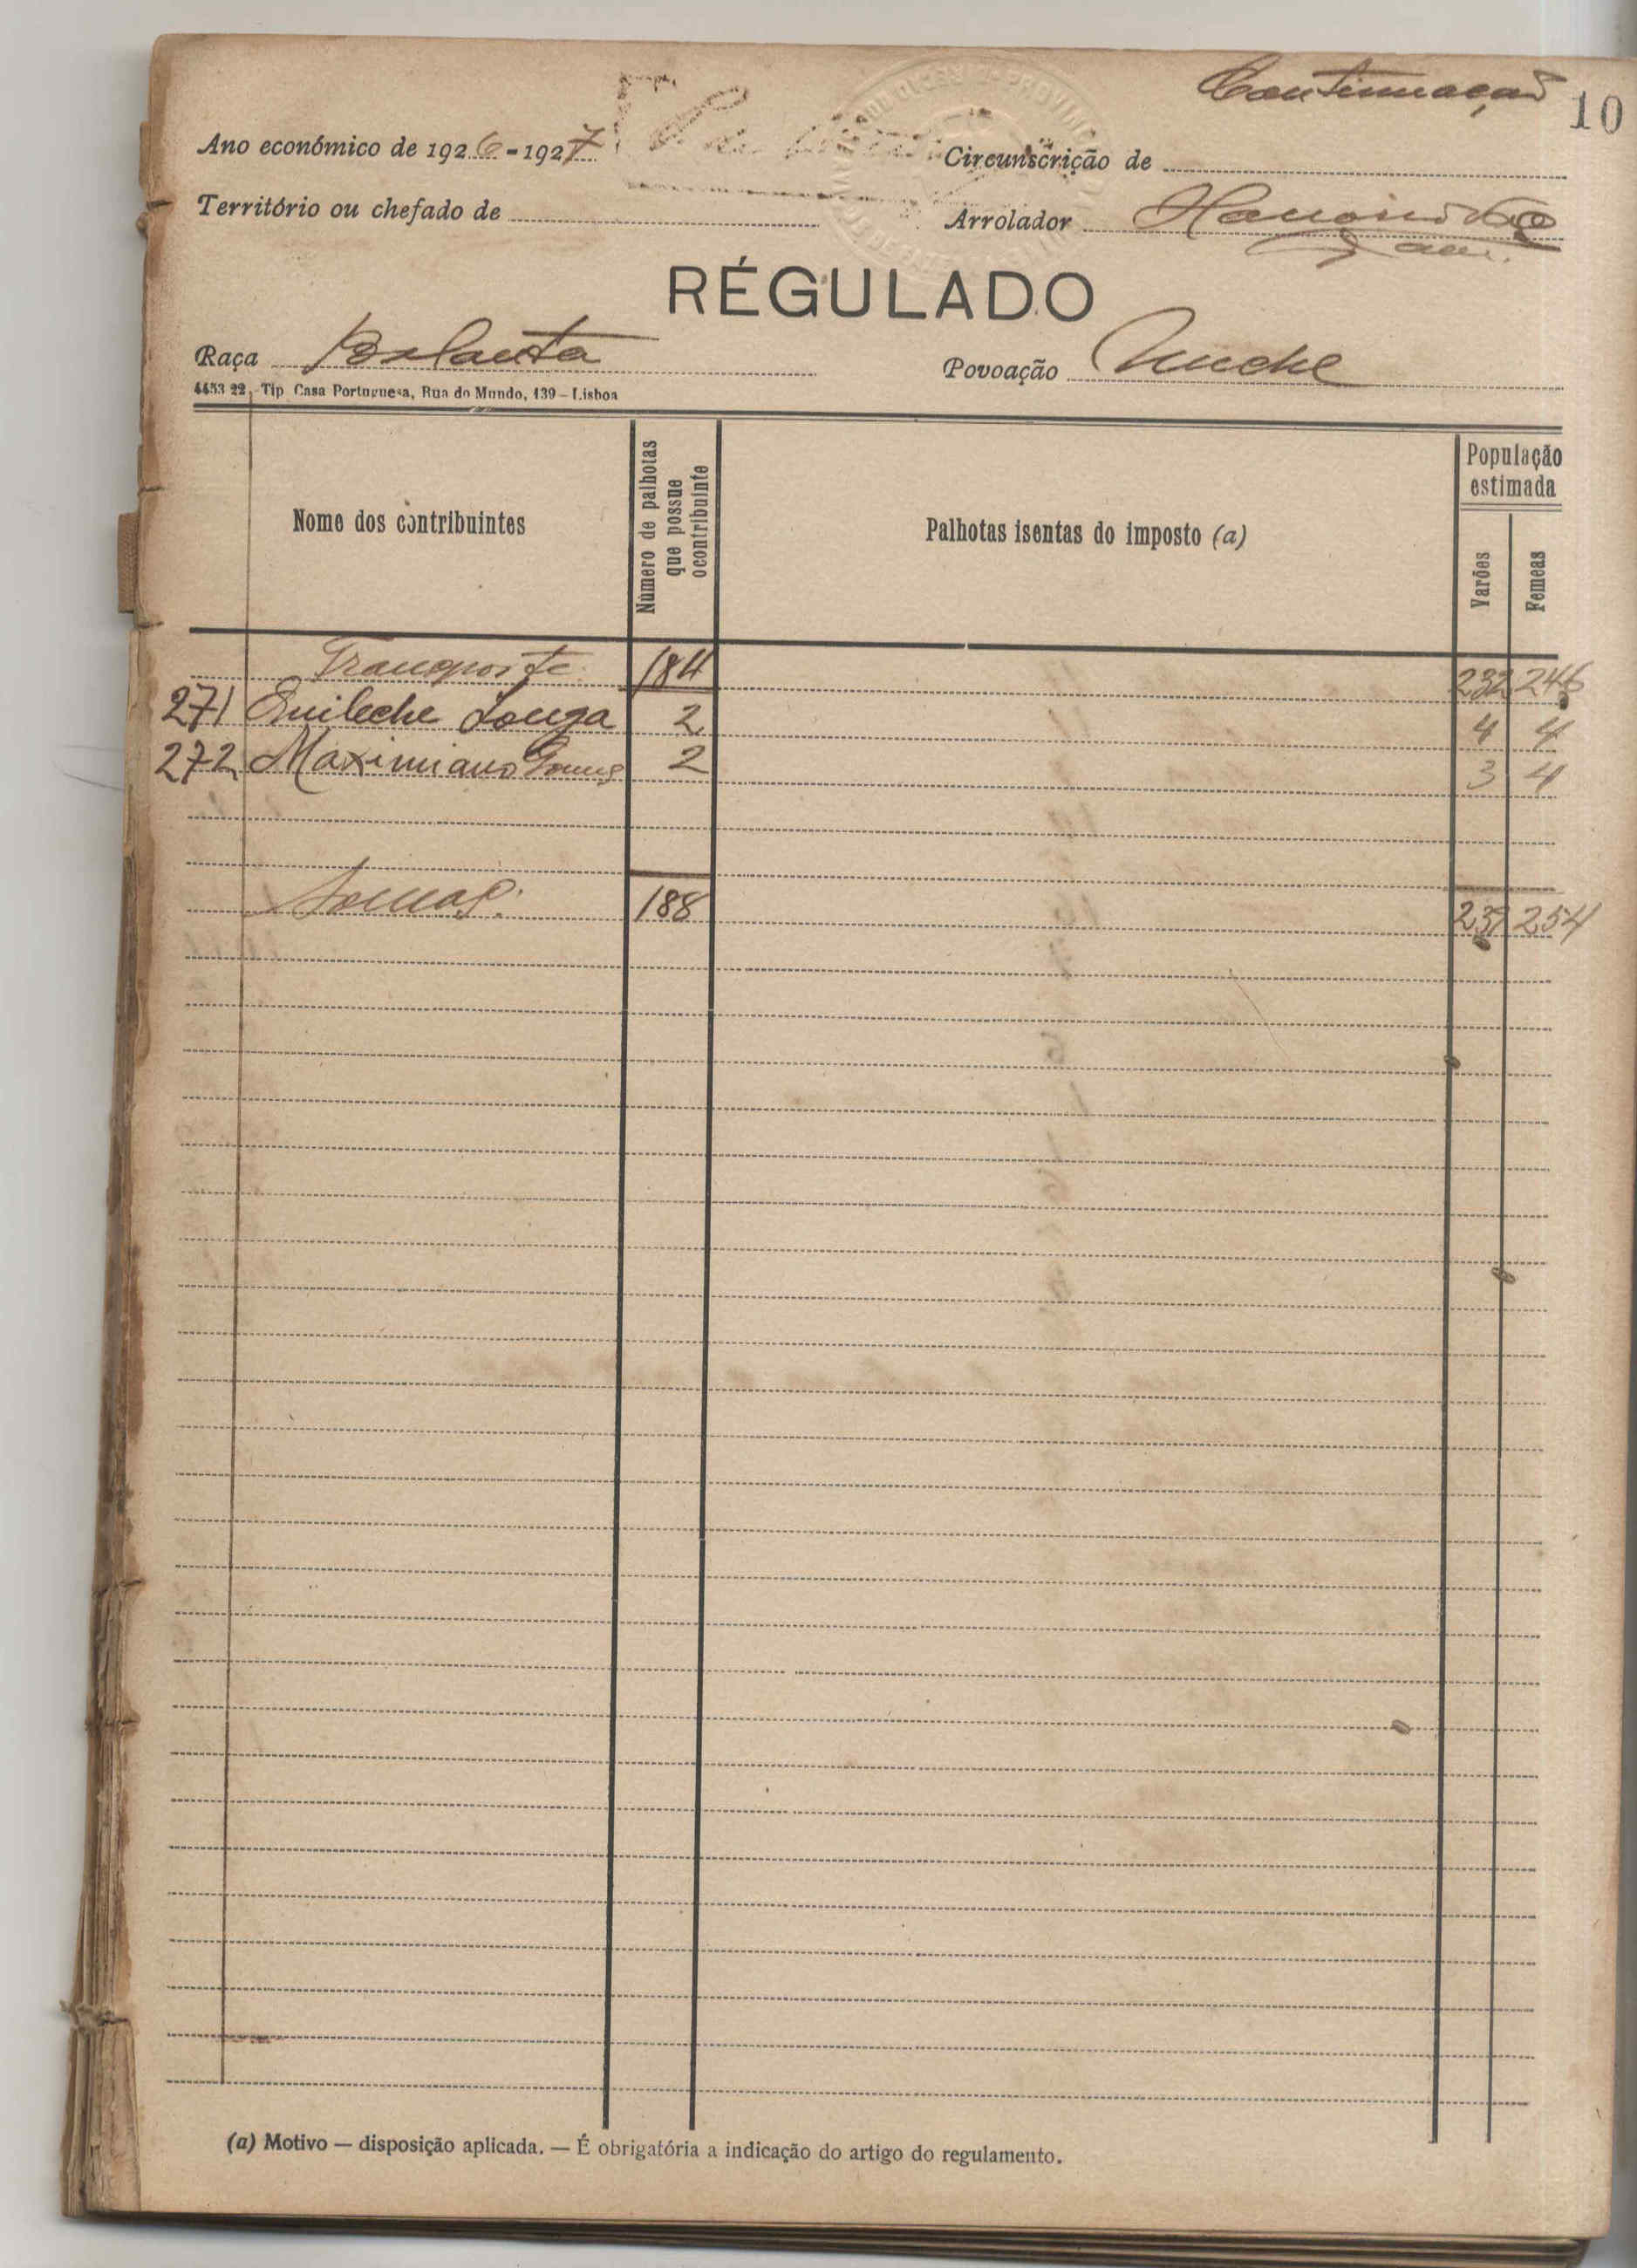 Continuação
10
Ano económico de 1926-1927
Circunscrição de
Território ou chefado de
Arrolador
RÉGULADO
Raça Balanta
Povoação Unche
4453 22, - Tip Casa Portuguesa, Rua do Mundo, 139 - Lisboa
Nome dos contribuintes
Número de palhotas que possue o contribuinte
Palhotas isentas do imposto (a)
População estimada
Varões
Femeas
Transporte 184 232 246
271 Quileche Longa 2 4 4
272 Maximiano Gomes 2 3 4
Somas: 188 239 254
(a) Motivo — disposição aplicada. — É obrigatória a indicação do artigo do regulamento.